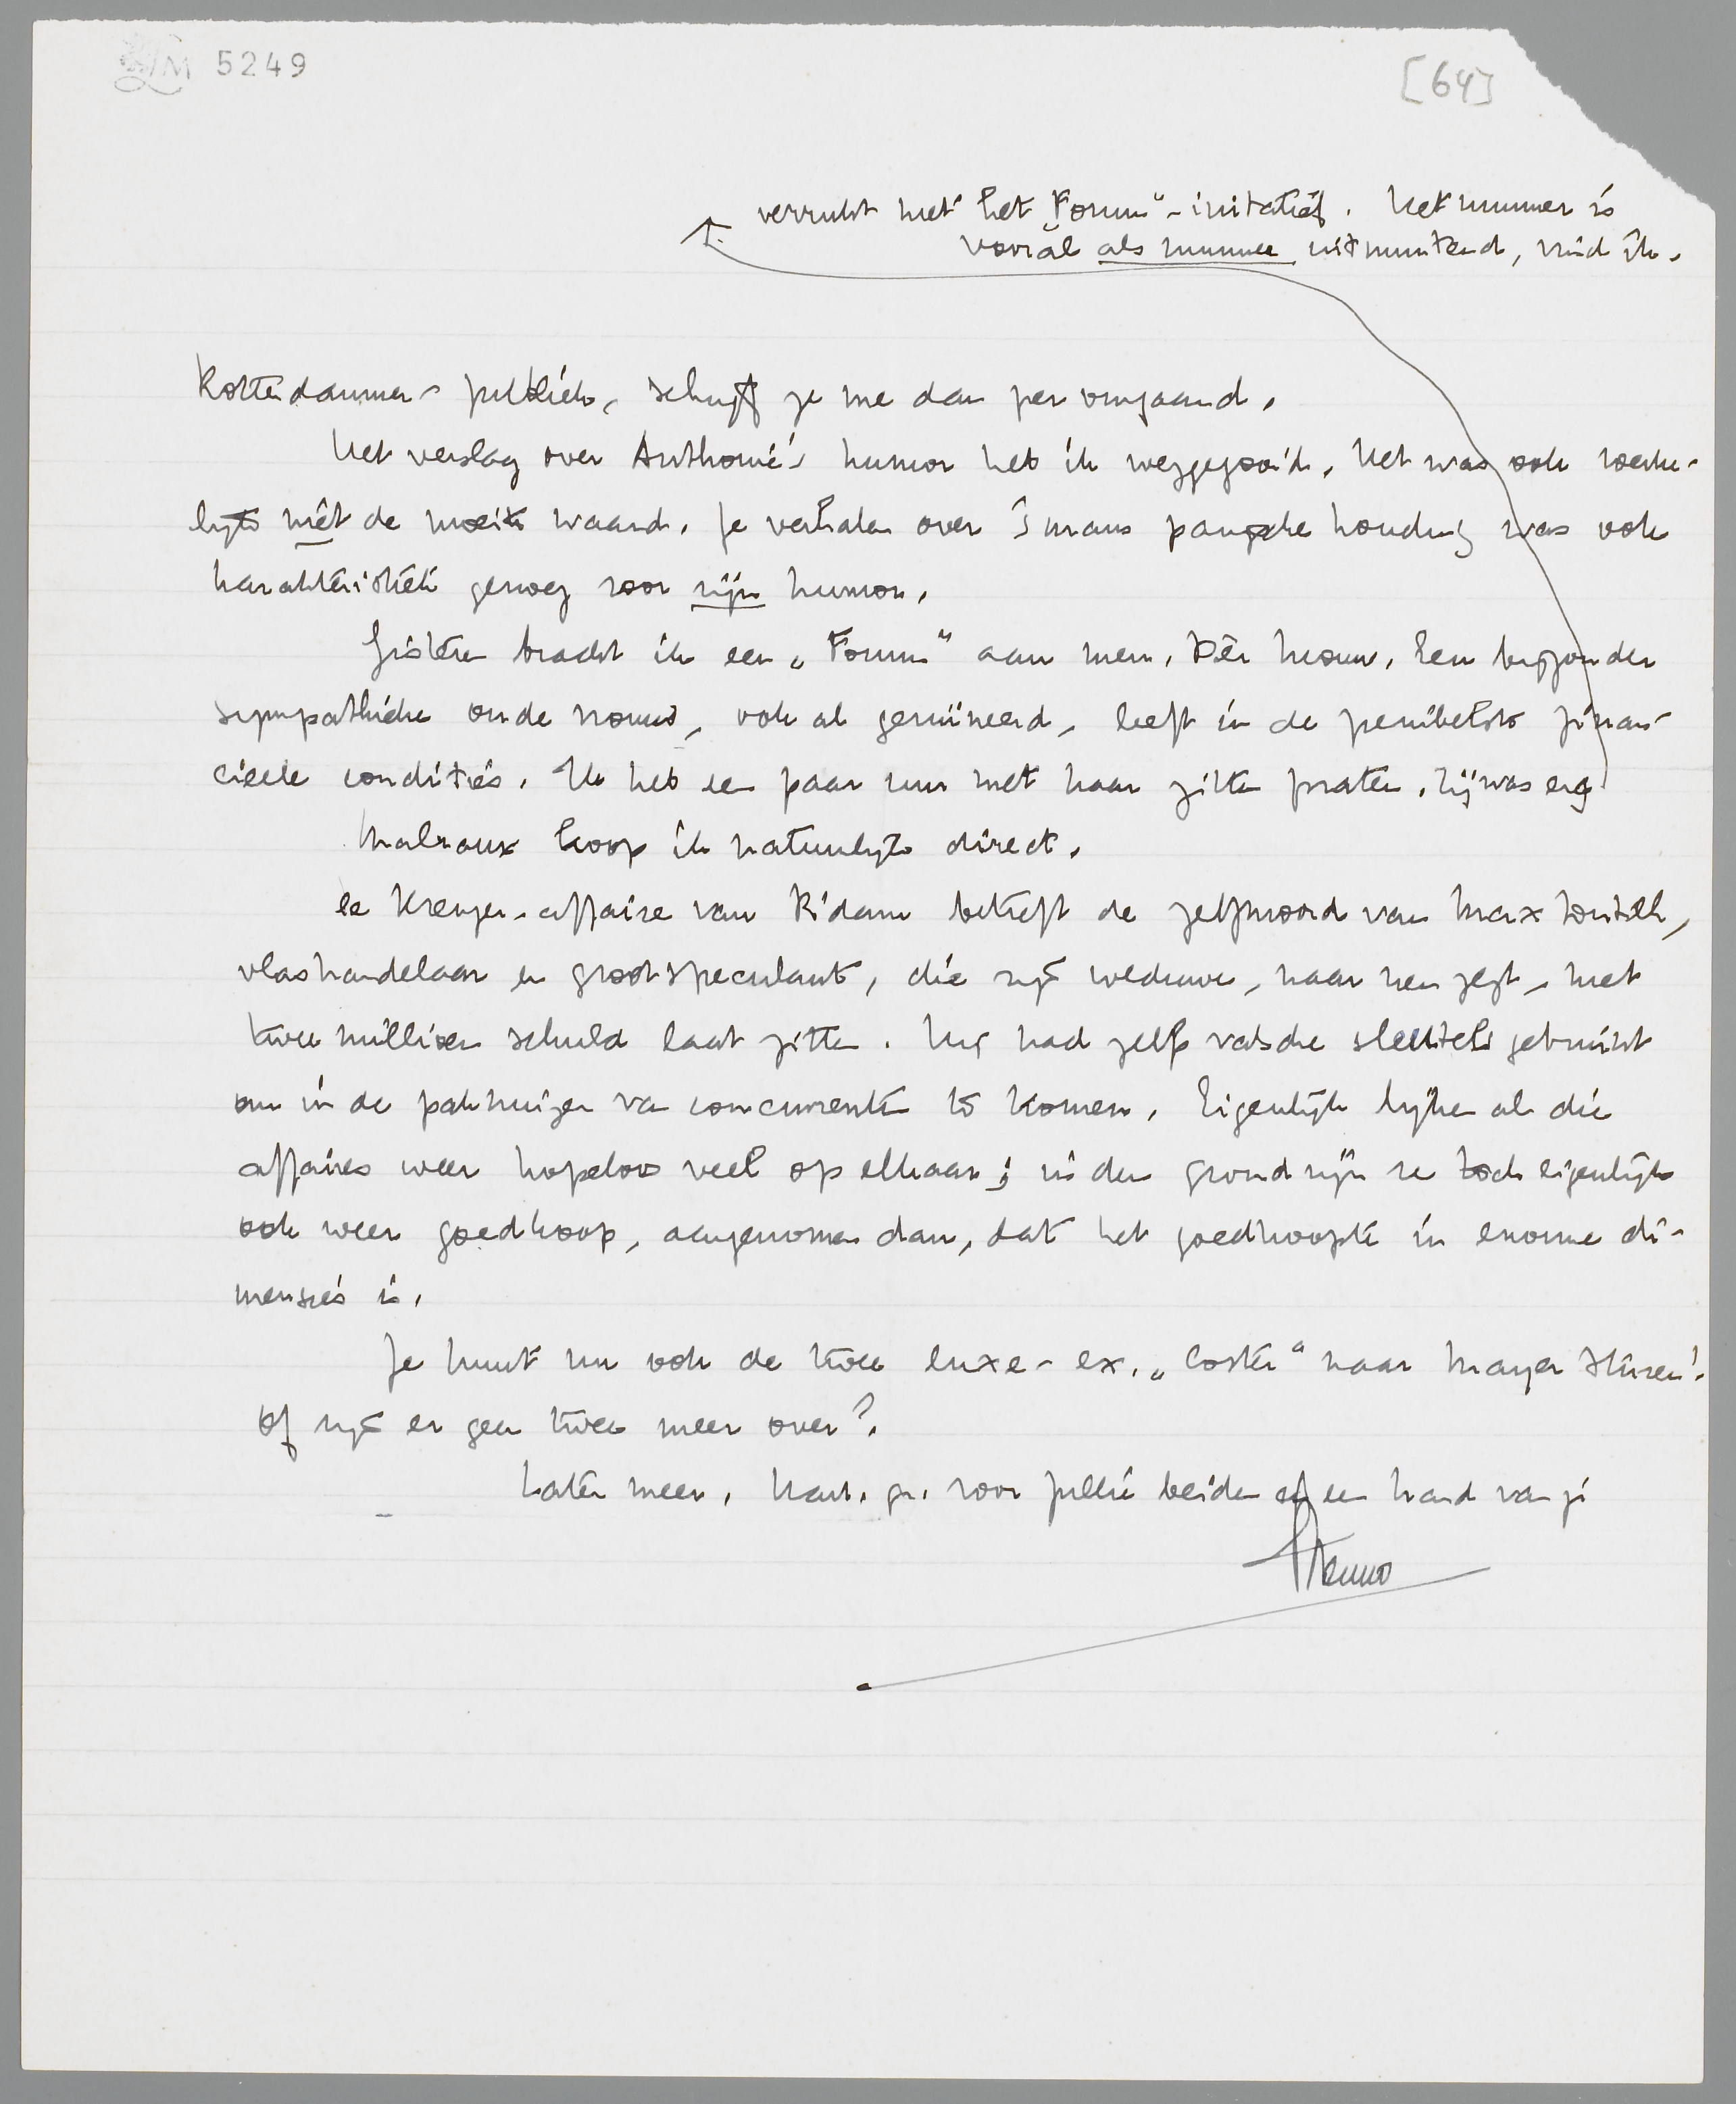 M 5249
[64]
verrukt met het „Forum"-initiatief. Het nummer is
vooral als nummer uitmuntend, vind ik.
Rotterdammer-publiek, schrijf je me dan per omgaand.
Het verslag over Anthonie's humor heb ik weggegooid. Het was ook werke-
lijk niet de moeite waard. Je verhalen over 's mans paniche houding was ook
karakteristiek genoeg voor zijn humor.
Gisteren bracht ik een „Forum" aan mevr. Kouw. Een bijzonder
sympathieke oude vrouw, ook al geruïneerd, leeft in de penibelste finan-
cieele condities. Ik heb een paar uur met haar zitten praten. Zij was erg
Malraux koop ik natuurlijk direct.
De Kreuger-affaire van R'dam betreft de zelfmoord van Max
vlashandelaar en grootspeculant, die zijn weduwe, naar men zegt, met
twee millioen schuld laat zitten. Hij had zelfs valsche sleutels gebruikt
om in de pakhuizen van concurrenten te komen. Eigenlijk lijken al die
affaires weer hopeloos veel op elkaar; in den grond zijn ze toch eigenlijk
ook weer goedkoop, aangenomen dan, dat het goedkoopte in enorme di-
mensies is.
Je kunt nu ook de twee luxe-ex. „Coster" naar Mayer sturen!
Of zijn er geen twee meer over?
Later meer. Hart. gr. voor jullie beiden en een hand van je
Menno